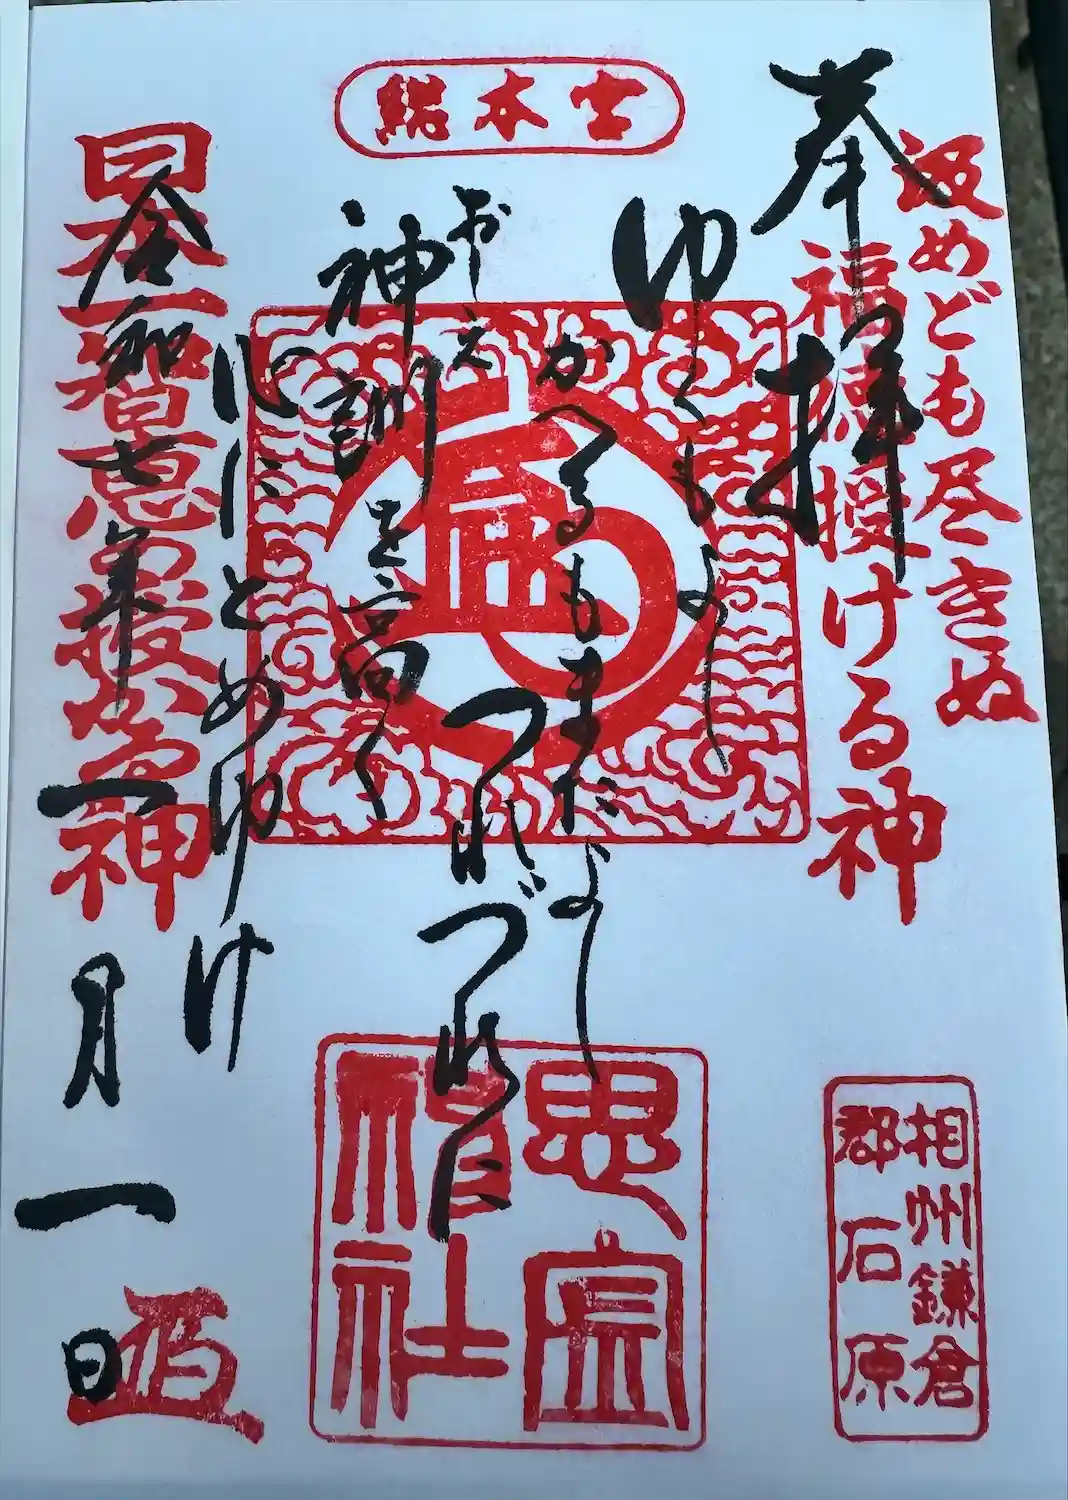 総本宮
奉拝
汲めども尽きぬ
福徳授ける神
ゆくもよし
かへるもまたよし
つれづれに
神訓を高く
心にとめゆけ
日本一智恵授かる神
令和七年一月一日
思金神社
相州鎌倉
郡石原